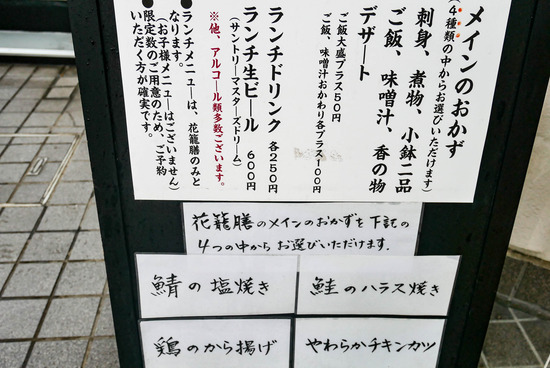 メインのおかず
(4種類の中からお選びいただけます)
刺身、煮物、小鉢二品
ご飯、味噌汁、香の物
デザート
ご飯大盛プラス50円
ご飯、味噌汁おかわり各プラス100円
ランチドリンク 各250円
ランチ生ビール 600円
(サントリーマスターズドリーム)
※他、アルコール類多数ございます。
●ランチメニューは、花籠膳のみと
なります。
(お子様メニューはございません)
●限定数のご用意のため、ご予約
いただく方が確実です。
花籠膳のメインのおかずを下記の
4つの中からお選びいただけます.
鯖の塩焼き
鮭のハラス焼き
鶏のから揚げ
やわらかチキンカツ